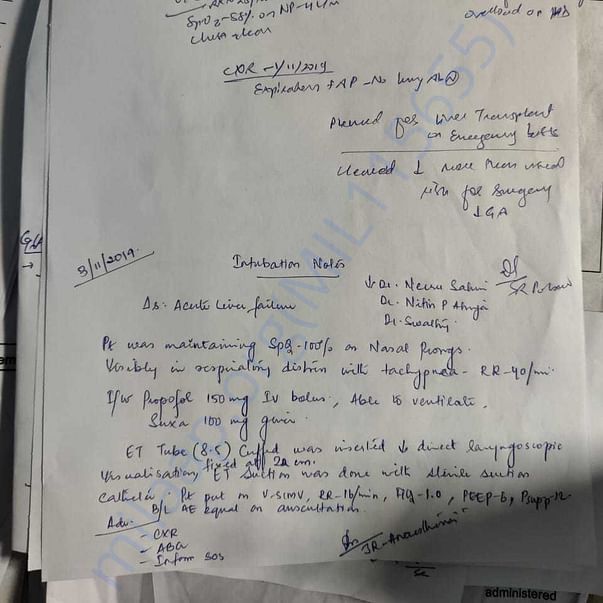 SpO2-58% on NP-4L/m
Chest clear
overload on
CXR -1/11/2019
Expiratory + AP -No lung Ab(N)
Planned for Liver Transplant
on Emergency basis
Cleared ↓ more than usual
risk for surgery
↓GA
3/11/2019.
Intubation Notes
↓ Dr. Neeru Sahni
SR
Dr. Nitin P Ahuja
Dr. Swathi
Δs: Acute liver failure
Pt was maintaining SpO2-100% on Nasal Prongs.
Visibly in respiratory distress with tachypnea - RR-40/min.
I/w Propofol 150mg Iv bolus, Able to ventilate.
Suxa 100 mg given.
ET Tube (8.5) Cuffed was inserted ↓ direct laryngoscopic
visualisation, fixed at 22 cm. ET Suction was done with sterile suction
catheter. Pt put on V-SIMV, RR-16/min, FiO2-1.0, PEEP-6, Psupp-12.
B/L AE equal on auscultation.
Adv.
- CXR
- ABG
- Inform SOS
JR-Anaesthesia
SR
administered
milaap.org(MIL115655)